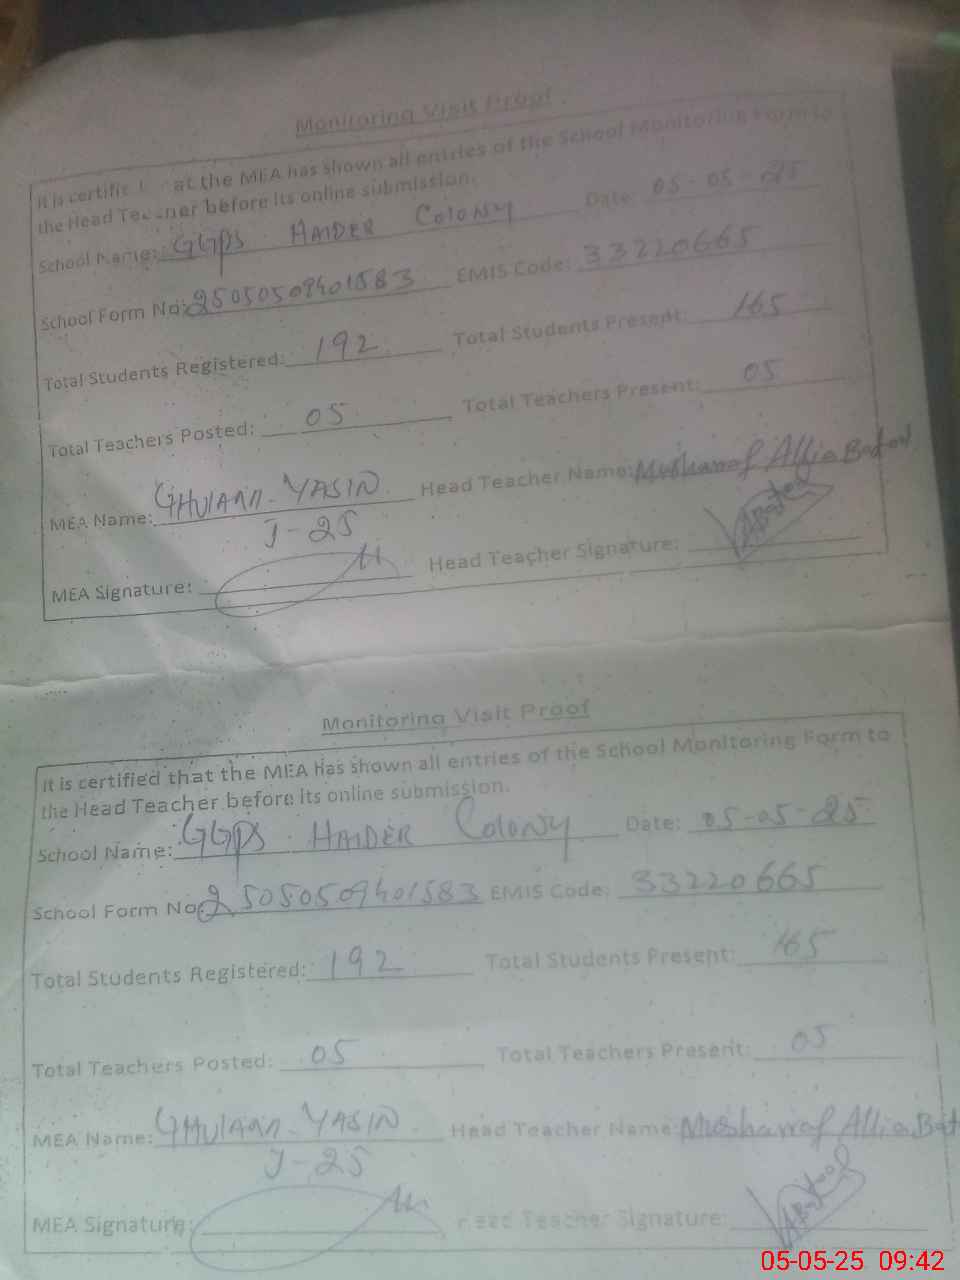 Monitoring Visit Proof
It is certified that the MEA has shown all entries of the School Monitoring Form to
the Head Teacher before its online submission.
School Name: GGPS HAIDER COLONY Date: 05-05-25
School Form No: 25050509401583 EMIS Code: 33220665
Total Students Registered: 192 Total Students Present: 165
Total Teachers Posted: 05 Total Teachers Present: 05
MEA Name: GHULAM YASIN Head Teacher Name: Musharraf Allia Batool
J-25
MEA Signature: Head Teacher Signature: Batool
Monitoring Visit Proof
It is certified that the MEA has shown all entries of the School Monitoring Form to
the Head Teacher before its online submission.
School Name: GGPS HAIDER COLONY Date: 05-05-25
School Form No: 25050509401583 EMIS Code: 33220665
Total Students Registered: 192 Total Students Present: 165
Total Teachers Posted: 05 Total Teachers Present: 05
MEA Name: GHULAM YASIN Head Teacher Name: Musharraf Allia Bat
J-25
MEA Signature: Head Teacher Signature: Batool
05-05-25 09:42